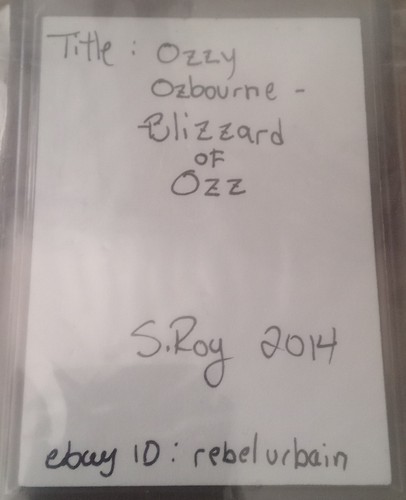 Title: Ozzy
Ozbourne -
Blizzard
OF
Ozz
S.Roy 2014
ebay ID: rebelurbain